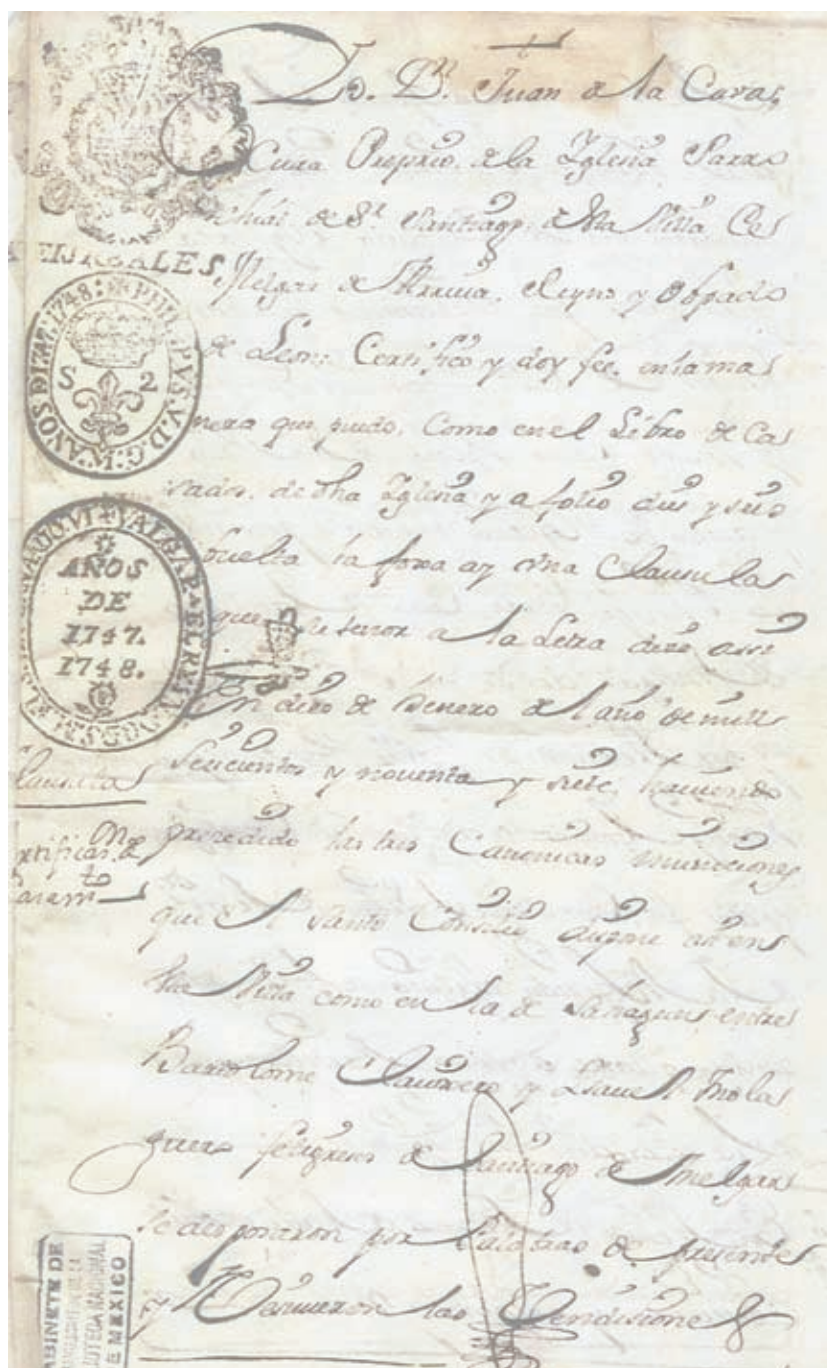 Yo. Dn. Juan de la Cava,
Cura Proprio. de la Yglesia Parro
chial de Sr. Santiago, de esta Villa de
Melgar de Arriva, Reyno y Obispado
de Leon: Certifico y doy fee, en la ma
nera que puedo, Como en el Libro de Ca
sados, de dha Yglesia y a folio diez y seis
buelta la foxa ay una Clausula
que su tenor a la Letra dize assi
En ocho de Henero de el año de mill
Seiscientos y noventa y siete, haviendo
prezedido las tres Canonicas moniciones
que el Santo Concilio dispone assi en
esta Villa como en la de Sahagun, entre
Bartolome Clavixero y Isavel
feligreses de Santiago de Melgar
se desposaron por Palabras de presente
y Rezivieron las Vendiziones
EIS REALES
PHILIPPUS.V.D.G.
AÑOS DE 1747.1748:
S 2
VALGA PARA EL REYNADO
AÑOS
DE
1747.
1748.
Clausula
Zertificas. de
Casamto
GABINETE DE
BIBLIOTECA NACIONAL
DE MEXICO